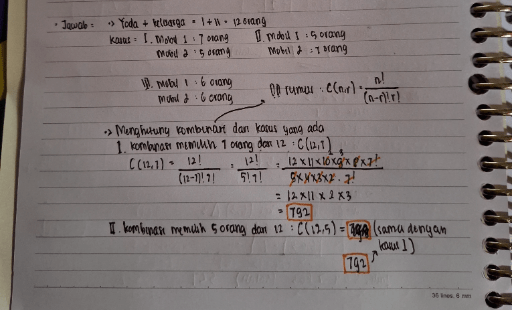 • Jawab : -> Yoda + keluarga = 1 + 11 = 12 orang
kasus : I. Mobil 1 : 7 orang II. Mobil 1 : 5 orang
mobil 2 : 5 orang mobil 2 : 7 orang
III. mobil 1 : 6 orang
mobil 2 : 6 orang
rumus : C(n,r) = n! / (n-r)! r!
-> Menghitung kombinasi dari kasus yang ada
I. kombinasi memilih 7 orang dari 12 : C(12,7)
C(12,7) = 12! / (12-7)! 7! = 12! / 5! 7! = 12 x 11 x 10 x 9 x 8 x 7! / 5 x 4 x 3 x 2 . 7!
= 12 x 11 x 2 x 3
= 792
II. kombinasi memilih 5 orang dari 12 : C(12,5) = (sama dengan
kasus I)
792
30 lines, 6 mm